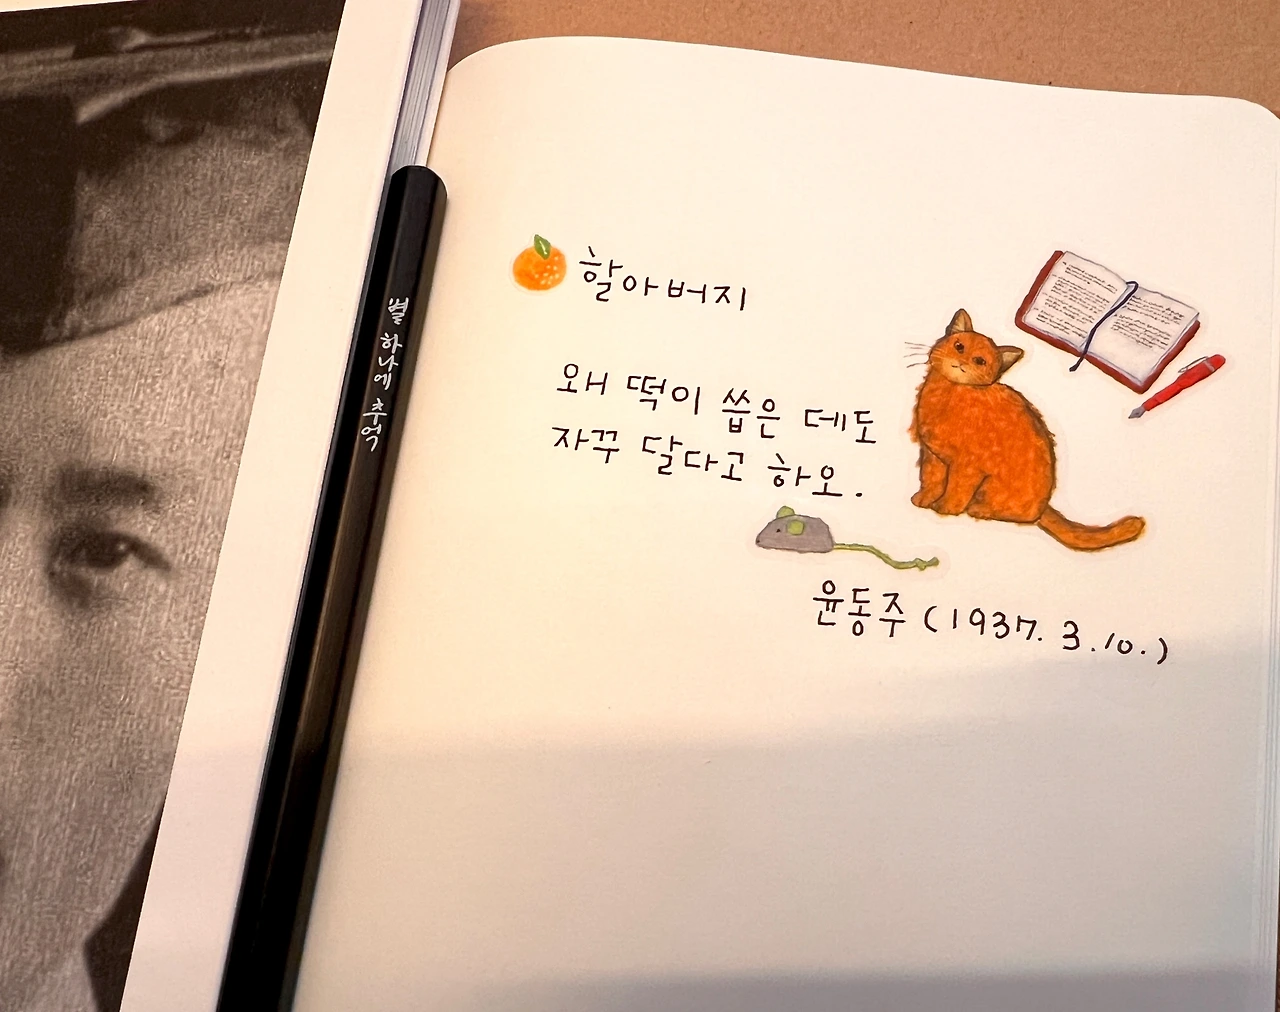 별 하나에 추억
할아버지
왜 떡이 씁은 데도
자꾸 달다고 하오.
윤동주 (1937. 3.10.)